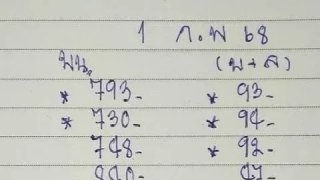 1 ก.พ 68
บน. (บ+ล)
* 793- * 93-
* 730- * 94-
748- * 92-